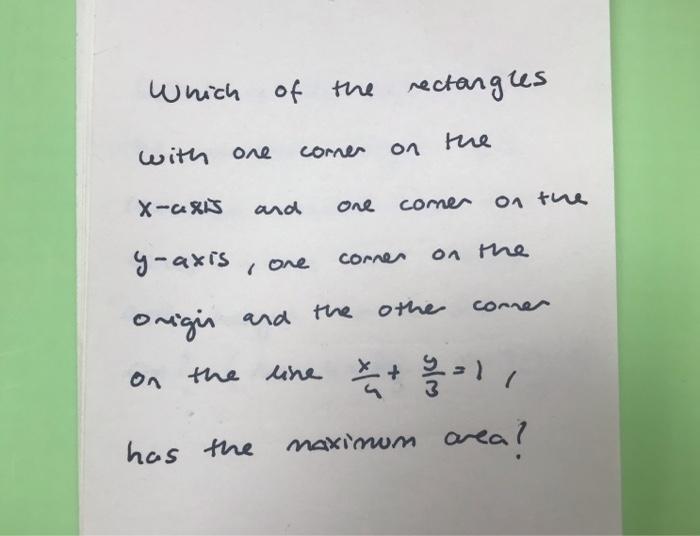 Which of the rectangles
with one corner on the
x-axis and one corner on the
y-axis, one corner on the
origin and the other corner
on the line x/4 + y/3 = 1,
has the maximum area?